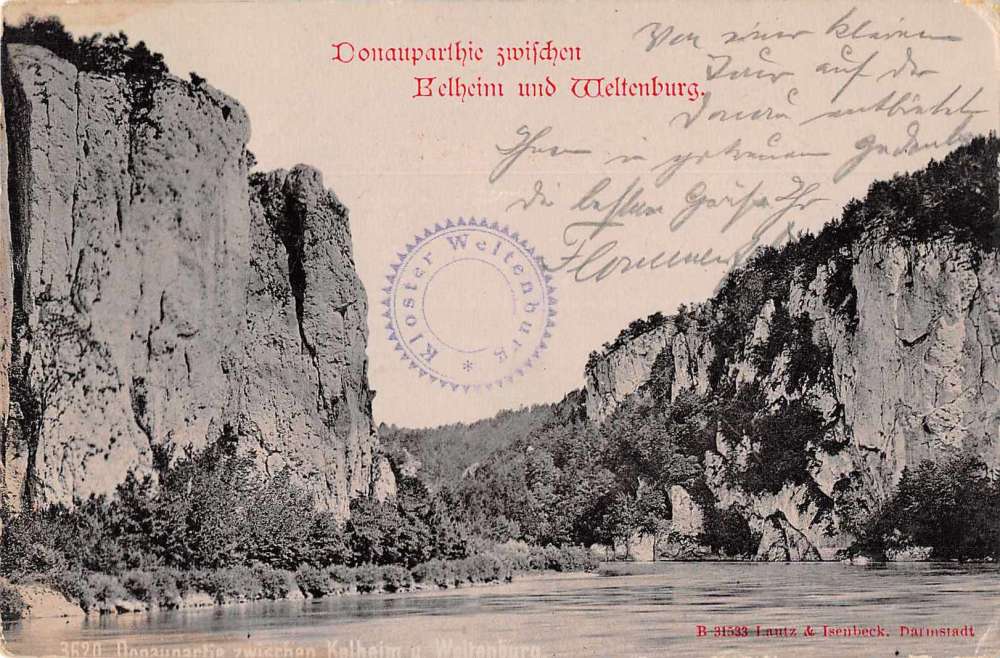 Donauparthie zwischen
Kelheim und Weltenburg.
Von einer kleinen
Tour auf der
Donau entbietet
Ihnen in getreuem Gedenken
die besten Grüße Ihr
Kloster Weltenburg *
B 31533 Lautz & Isenbeck. Darmstadt
3620 Donaupartie zwischen Kelheim u Weltenburg